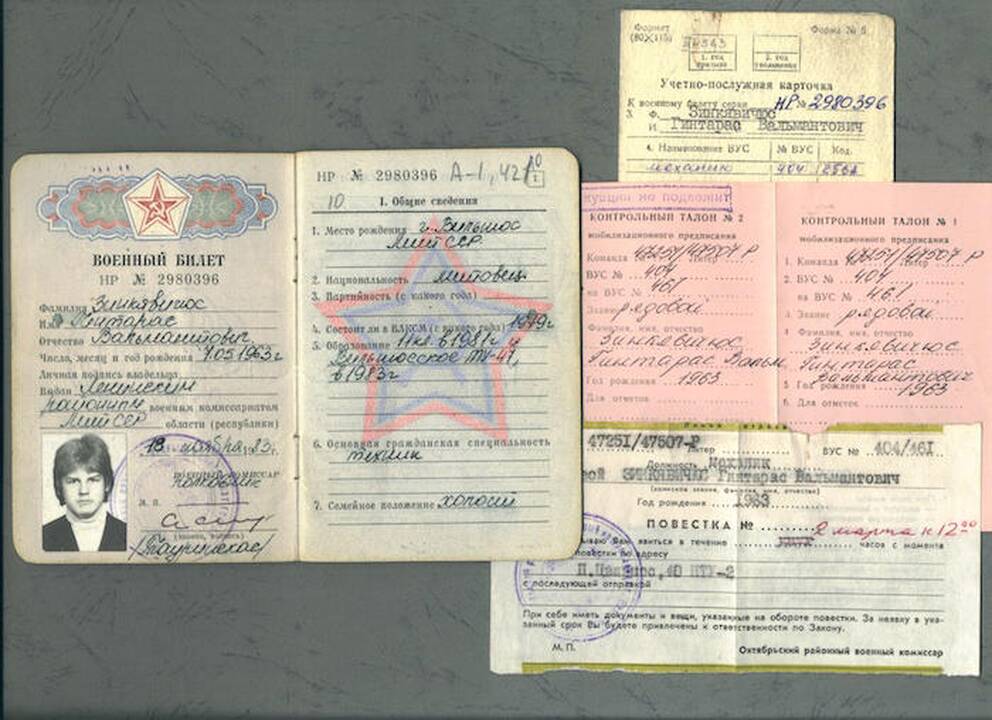 ВОЕННЫЙ БИЛЕТ
НР № 2980396
Фамилия Зинкявичюс
Имя Гинтарас
Отчество Вальмантович
Число, месяц и год рождения 7.05 1963 г
Личная подпись владельца
Выдан Ленинским
районным военным комиссариатом
Лит ССР области (республики)
18 ноября 1983 г.
ВОЕННЫЙ КОМИССАР
М. П.
НР № 2980396 А-1, 42
10 I. Общие сведения
1. Место рождения г. Вильнюс
Лит ССР
2. Национальность литовец
3. Партийность (с какого года)
4. Состоит ли в ВЛКСМ (с какого года) 1979г
5. Образование 11 кл. в 1981 г. и
Вильнюсское ТУ-41,
в 1983г
6. Основная гражданская специальность
техник
7. Семейное положение холост
Формат
(80×115)
Форма № 5
1. год
призыва
2. год
увольнения
Учетно-послужная карточка
К военному билету серии НР № 2980396
3. Ф. Зинкявичюс
И. Гинтарас Вальмантович
4. Наименование ВУС № ВУС Код
механик 404
не подлежит
КОНТРОЛЬНЫЙ ТАЛОН № 2
мобилизационного предписания
Команда 47251/47507 Р
ВУС № 404
на ВУС № 461
Звание рядовой
Фамилия, имя, отчество
Зинкевичюс
Гинтарас Вальм
Год рождения 1963
Для отметок
КОНТРОЛЬНЫЙ ТАЛОН № 1
мобилизационного предписания
1. Команда 47251/47507 Р Литер
2. ВУС № 404
на ВУС № 461
3. Звание рядовой
4. Фамилия, имя, отчество
Зинкевичюс
Гинтарас
Вальмантович
5. Год рождения 1963
6. Для отметок
47251/47507-Р Литер ВУС № 404/461
Должность Механик
ЗИНКЯВИЧЮС Гинтарас Вальмантович
(воинское звание, фамилия, имя, отчество)
Год рождения 1963
ПОВЕСТКА №
2 марта к 12 00
Вам явиться в течение часов с момента
повестки по адресу
40 ПТУ-2
с последующей отправкой
При себе иметь документы и вещи, указанные на обороте повестки. За неявку в ука-
занный срок Вы будете привлечены к ответственности по Закону.
М. П. Октябрьский районный военный комиссар